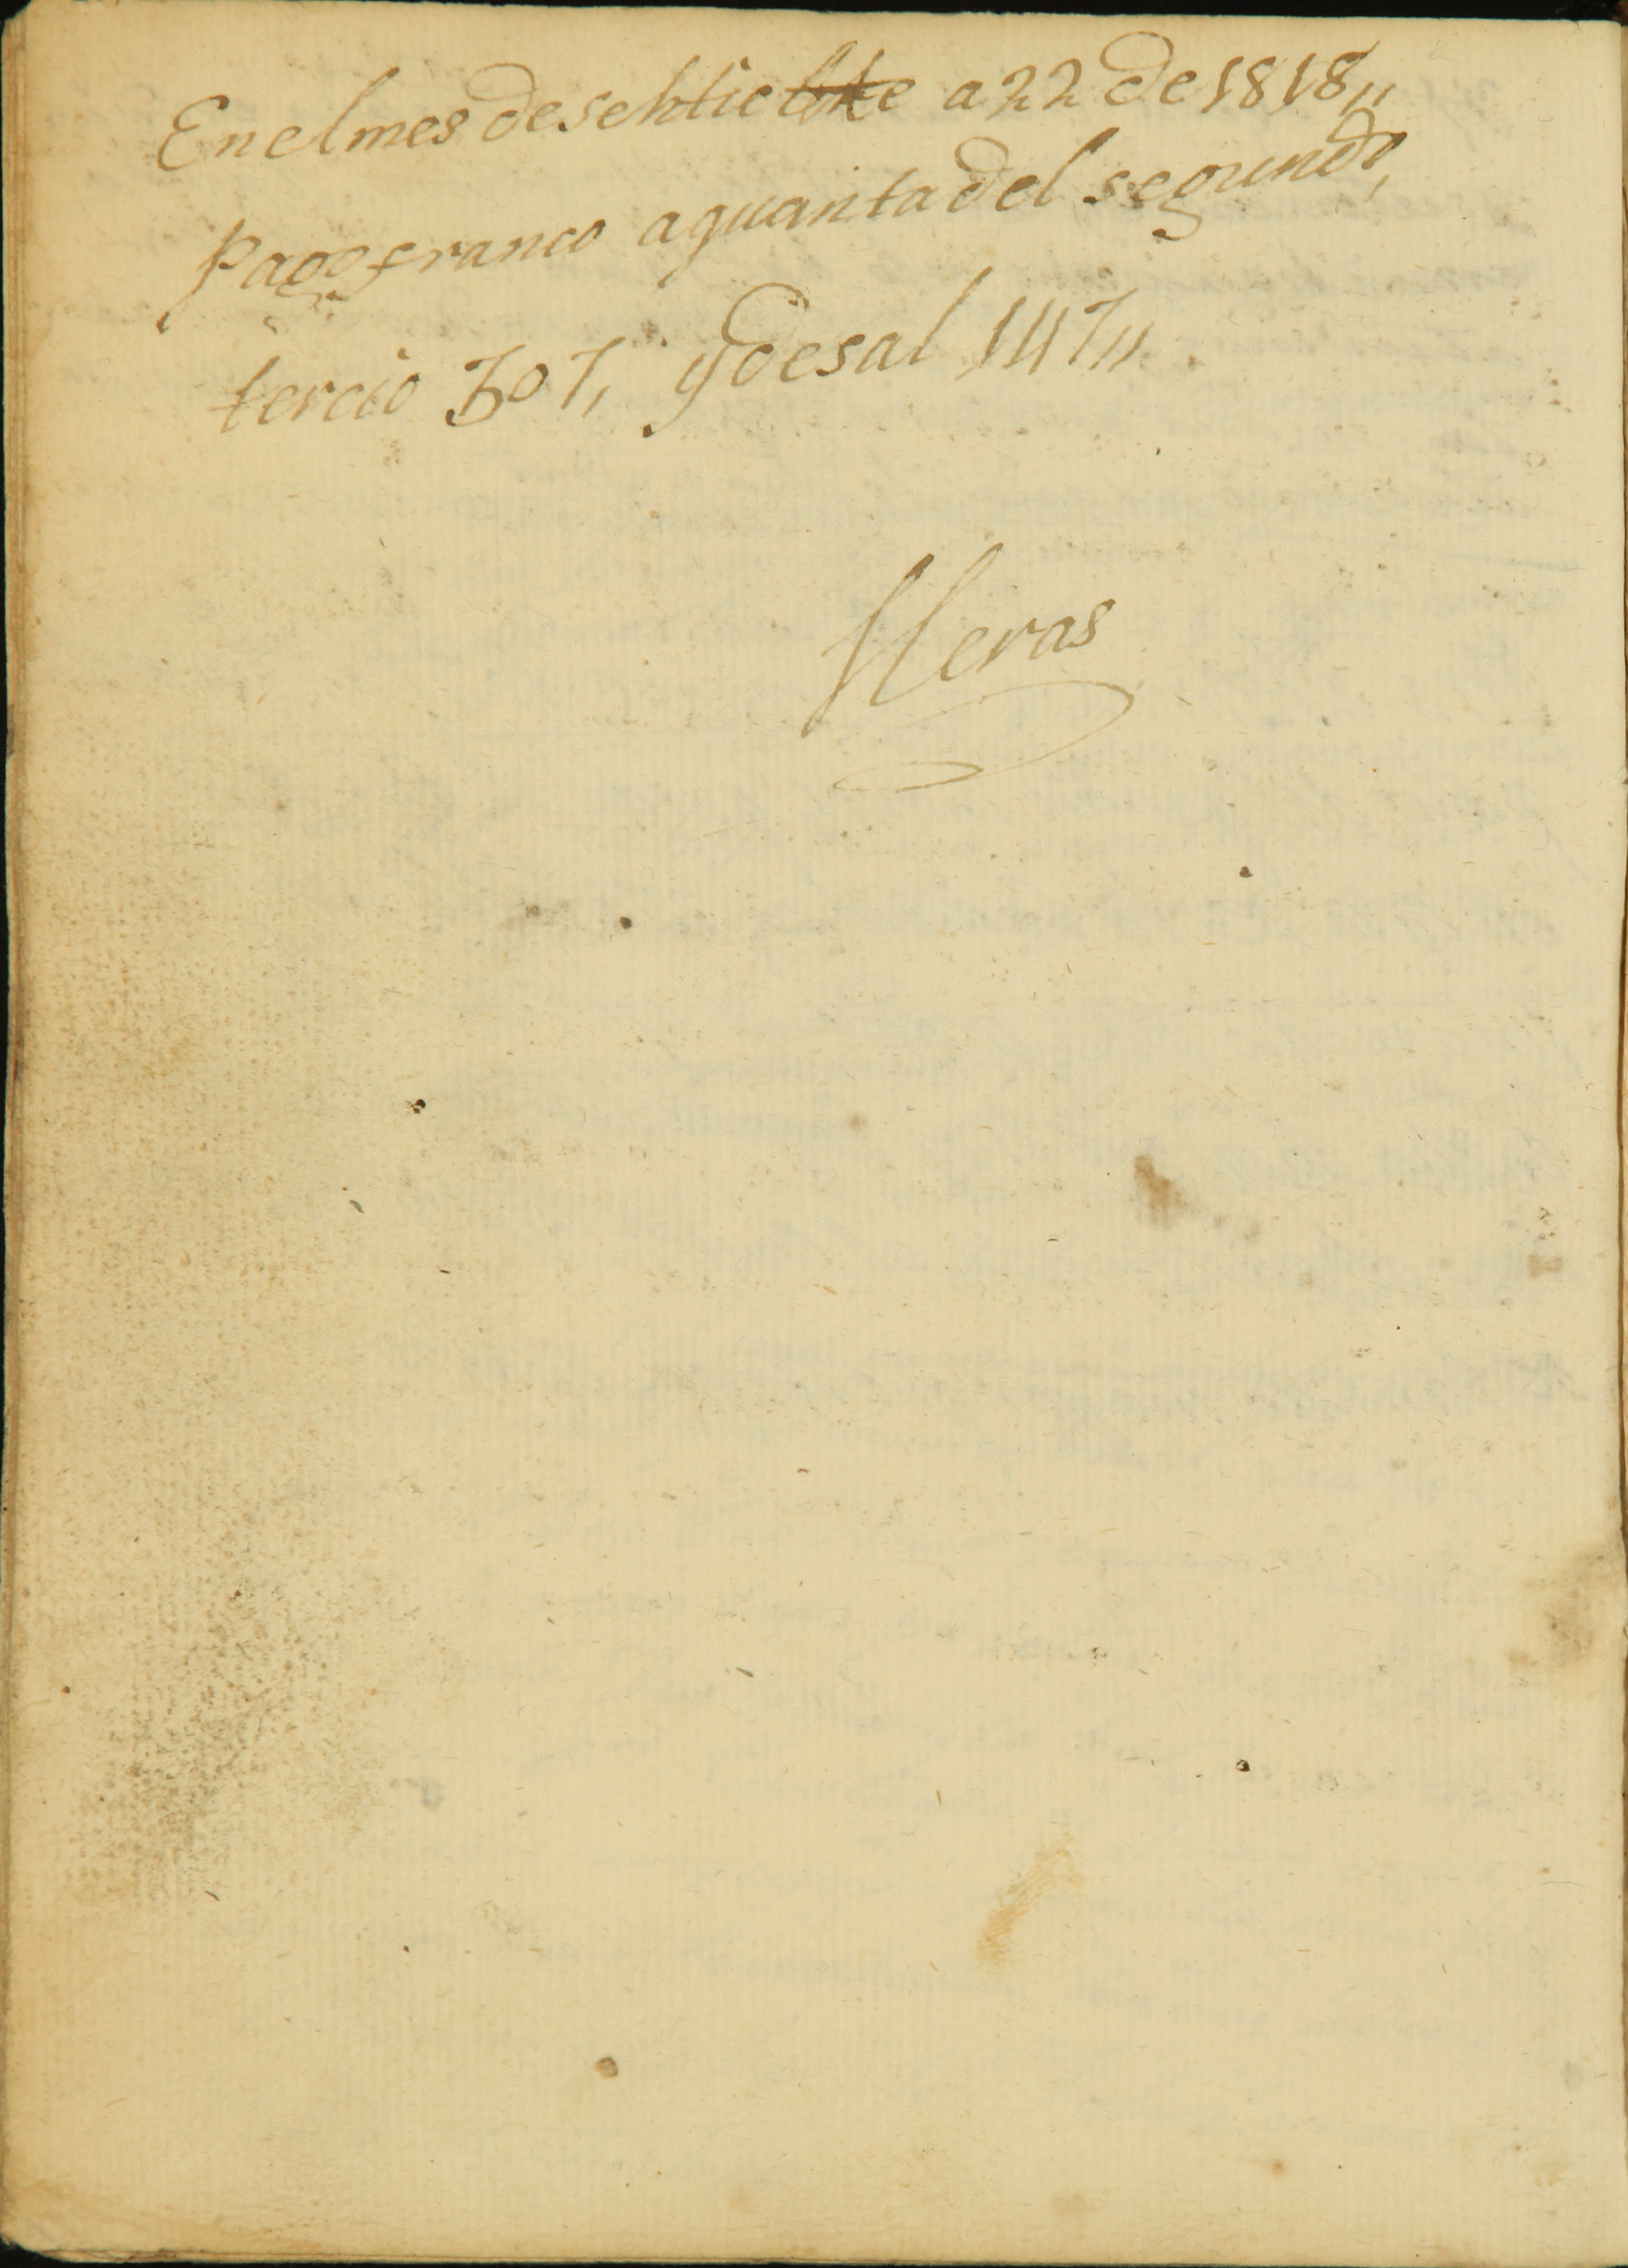 En el mes de sebtiebre a 22 de 1818,,
Pago franco a quanta del segundo,
tercio 307, y de sal 147,,
Heras